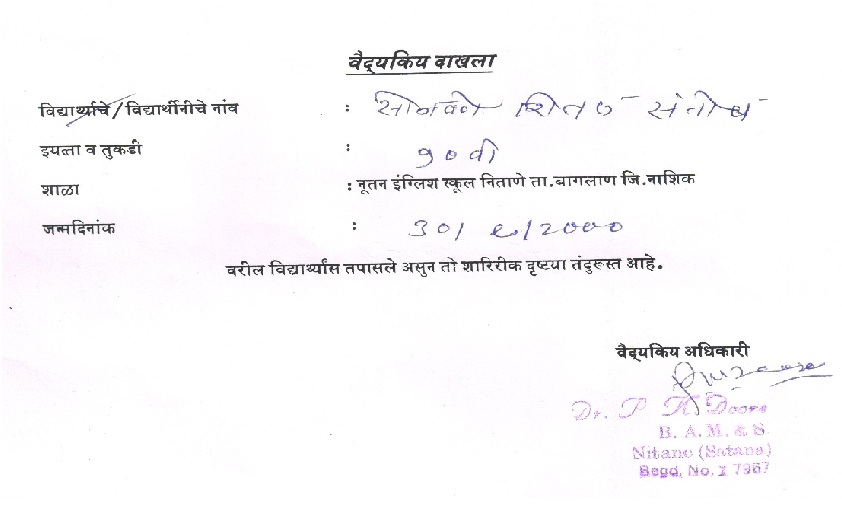 वैद्यकिय दाखला
विद्यार्थ्याचे / विद्यार्थीनीचे नांव : सोनवणे शितल संतोष
इयत्ता व तुकडी : १० वी
शाळा : नूतन इंग्लिश स्कूल निताणे ता.बागलाण जि.नाशिक
जन्मदिनांक : 30/ ९/2000
वरील विद्यार्थ्यांस तपासले असुन तो शारिरीक दृष्टया तंदुरूस्त आहे.
वैद्यकिय अधिकारी
Dr. P K Doore
B. A. M. & S.
Nitane (Satana)
Regd, No. I 7967